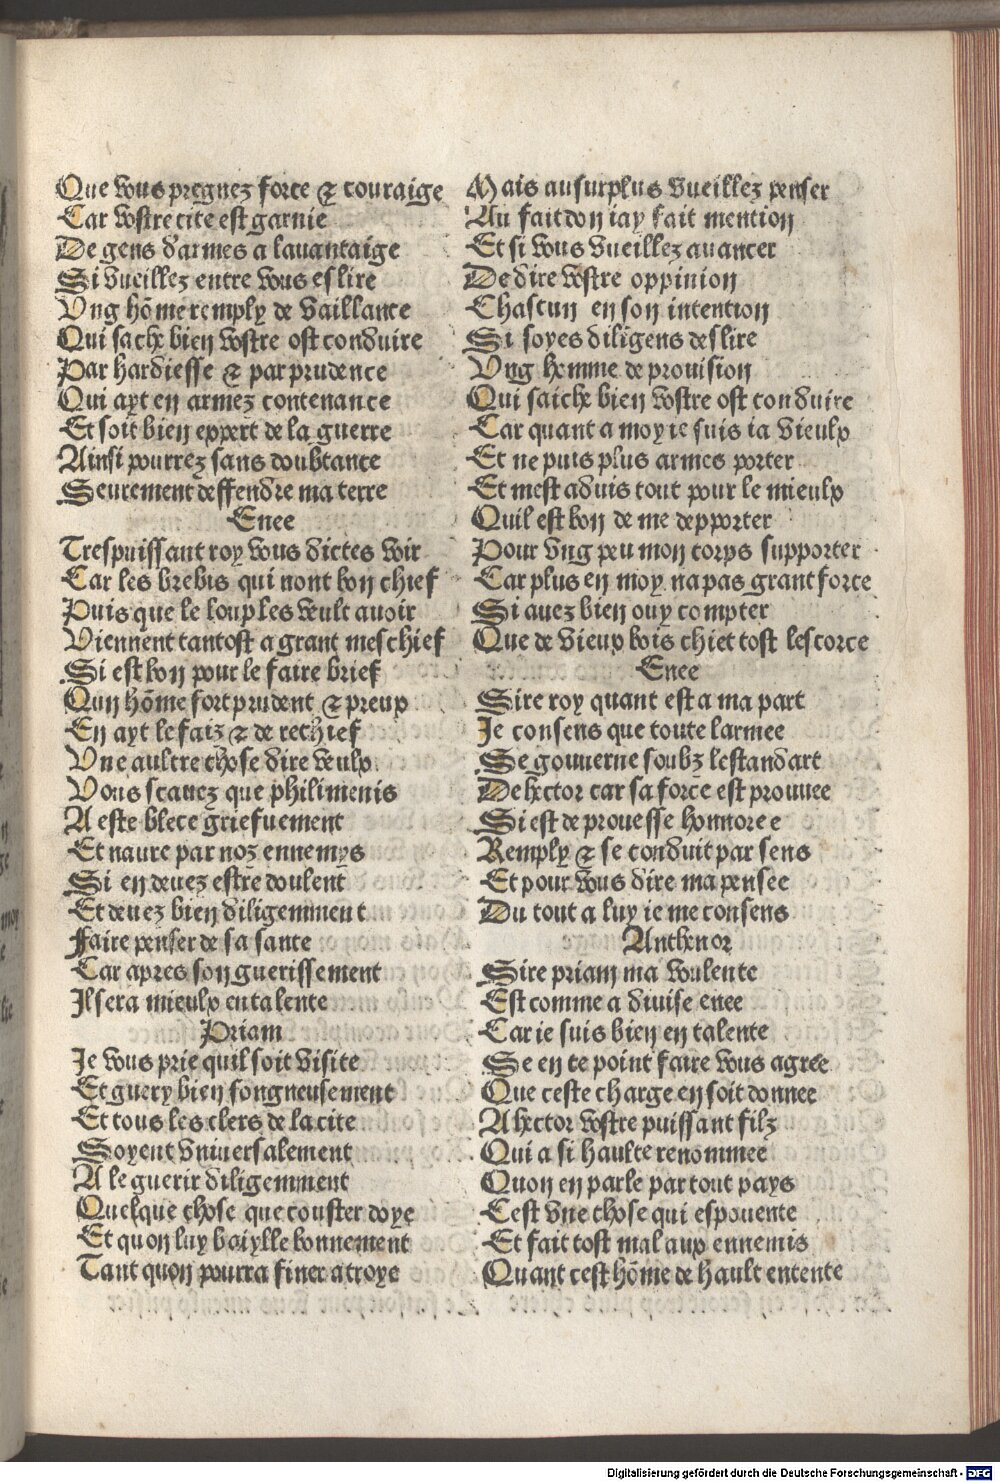 Que vous pregnez force & couraige
Car vostre cite est garnie
De gens darmes a lauantaige
Si vueillez entre vous eslire
Vng hõme remply de vaillance
Qui sache bien vostre ost conduire
Par hardiesse & par prudence
Qui ayt en armez contenance
Et soit bien expert de la guerre
Ainsi pourrez sans doubtance
Seurement deffendre ma terre
Enee
Trespuissant roy vous dictes voir
Car les brebis qui nont bon chief
Puis que le loup les veult auoir
Viennent tantost a grant meschief
Si est bon pour le faire brief
Qun hõme fort prudent & preux
En ayt le faiz & de rechief
Vne aultre chose dire veulx
Vous scauez que philimenis
A este blece griefuement
Et naure par noz ennemys
Si en deuez estre doulent
Et deuez bien diligemment
Faire penser de sa sante
Car apres son guerissement
Il sera mieulx entalente
Priam
Je vous prie quil soit visite
Et guery bien songneusement
Et tous les clers de la cite
Soyent vniuersalement
A le guerir diligemment
Quelque chose que couster doye
Et quon luy baiylle bonnement
Tant quon pourra finer a troye
Mais ausurplus vueillez penser
Au fait don iay fait mention
Et si vous vueillez auancer
De dire vostre oppinion
Chascun en son intention
Si soyes diligens deslire
Vng homme de prouision
Qui saiche bien vostre ost conduire
Car quant a moy ie suis ia vieulx
Et ne puis plus armes porter
Et mest aduis tout pour le mieulx
Quil est bon de me depporter
Pour vng peu mon corps supporter
Car plus en moy na pas grant force
Si auez bien ouy compter
Que de vieux bois chiet tost lescorce
Enee
Sire roy quant est a ma part
Je consens que toute larmee
Se gouuerne soubz lestandart
De hector car sa force est prouuee
Si est de prouesse honnoree
Remply & se conduit par sens
Et pour vous dire ma pensee
Du tout a luy ie me consens
Anthenor
Sire priam ma voulente
Est comme a diuise enee
Car ie suis bien en talente
Se en te point faire vous agree
Que ceste charge en soit donnee
A hector vostre puissant filz
Qui a si haulte renommee
Quon en parle par tout pays
Cest vne chose qui espouente
Et fait tost mal aux ennemis
Quant cest hõme de hault entente
Digitalisierung gefördert durch die Deutsche Forschungsgemeinschaft - DFG